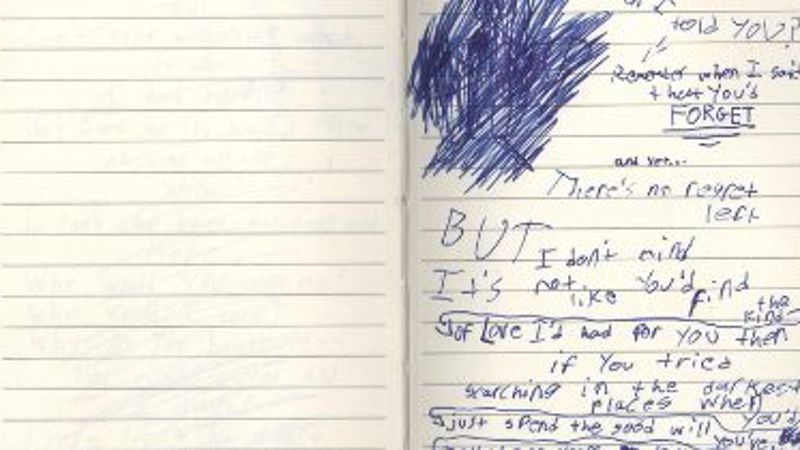 told YOU?
Remember when I said
that You'd
FORGET
and yet...
There's no regret
left
BUT I don't mind
It's not like You'd find
the kind
of Love I'd had for YOU then
if You tried
searching in the darkest
places when
just spend the good will You'd
you've